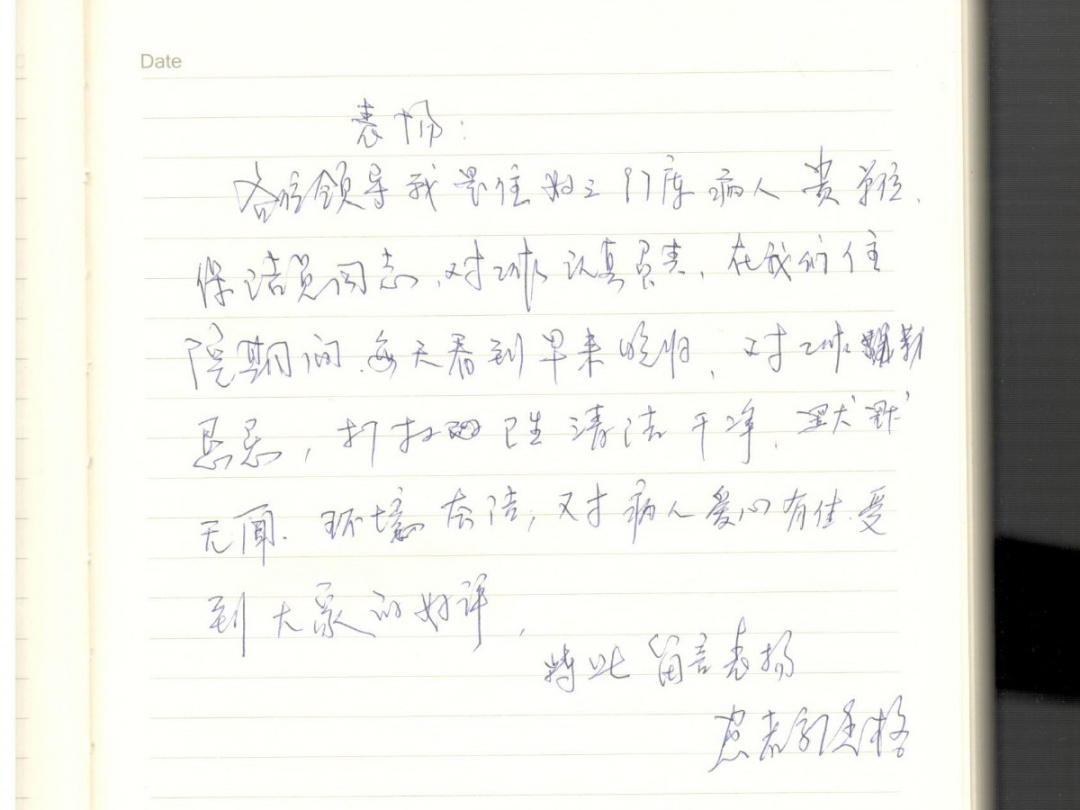 Date
表扬：
各位领导我是住妇三91床病人贵单位.
保洁员同志,对工作认真负责,在我们住
院期间.每天看到早来晚归,对工作勤
恳恳,打扫卫生清洁干净,默默
无闻.环境整洁,对病人爱心有佳.受
到大家的好评,
特此留言表扬
患者